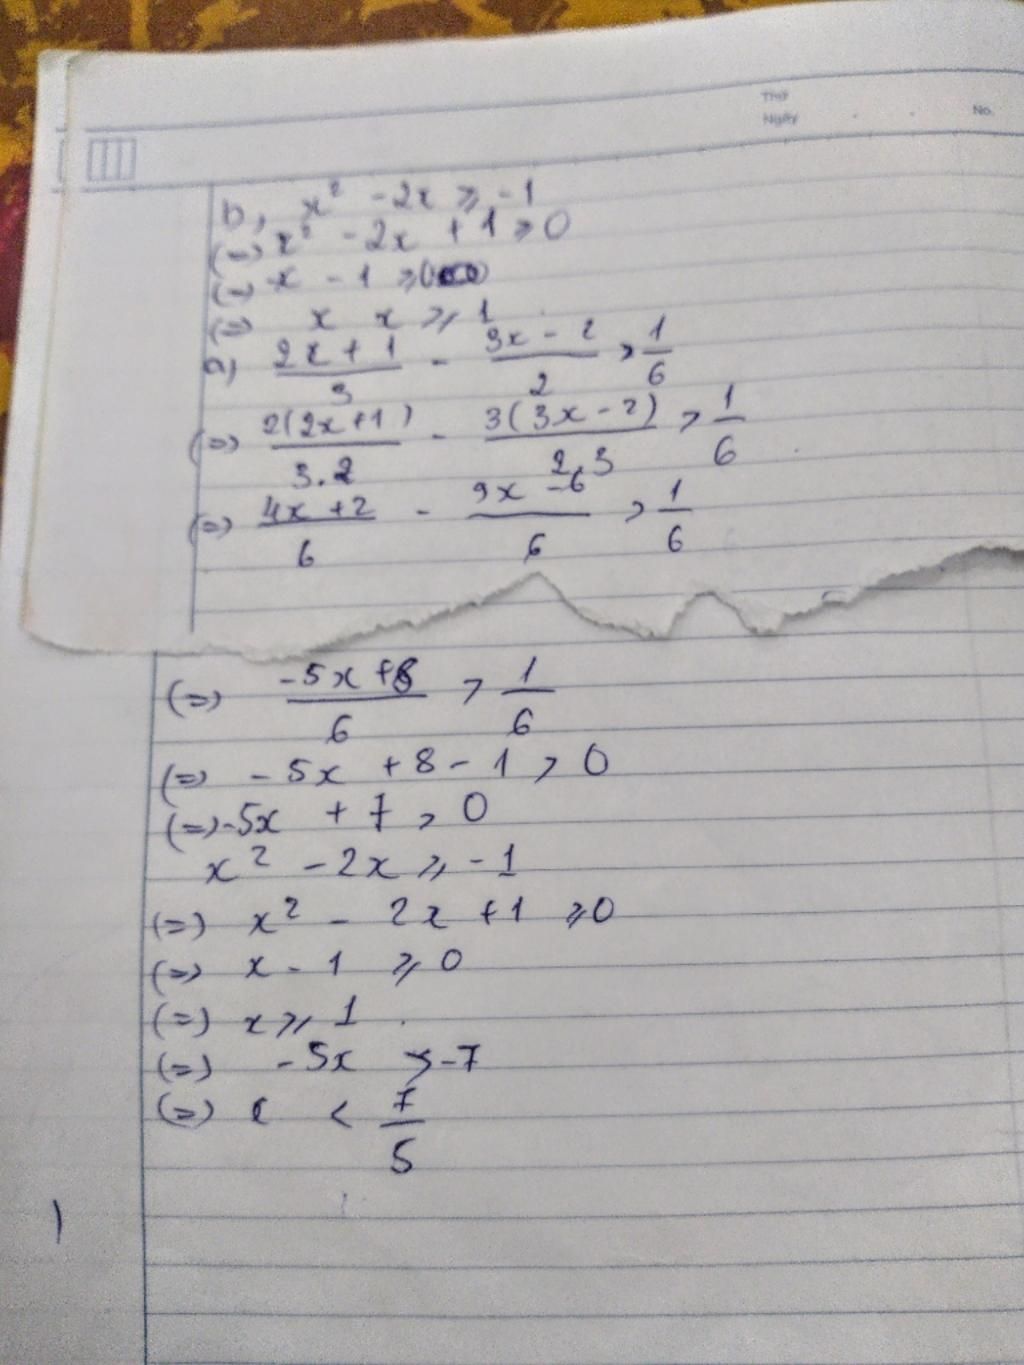 Thứ
Ngày No.
b, x² - 2x ⩾ -1
(=) x² - 2x + 1 ⩾ 0
(=) x - 1 ⩾ 0
(=) x x ⩾ 1
a) (2x + 1)/3 - (3x - 2)/2 > 1/6
(=) 2(2x+1)/3.2 - 3(3x-2)/2.3 > 1/6
(=) (4x+2)/6 - (9x-6)/6 > 1/6
(=) (-5x+8)/6 > 1/6
(=) -5x + 8 - 1 > 0
(=) -5x + 7 > 0
x² - 2x ⩾ -1
(=) x² - 2x + 1 ⩾ 0
(=) x - 1 ⩾ 0
(=) x ⩾ 1 .
(=) -5x > -7
(=) x < 7/5